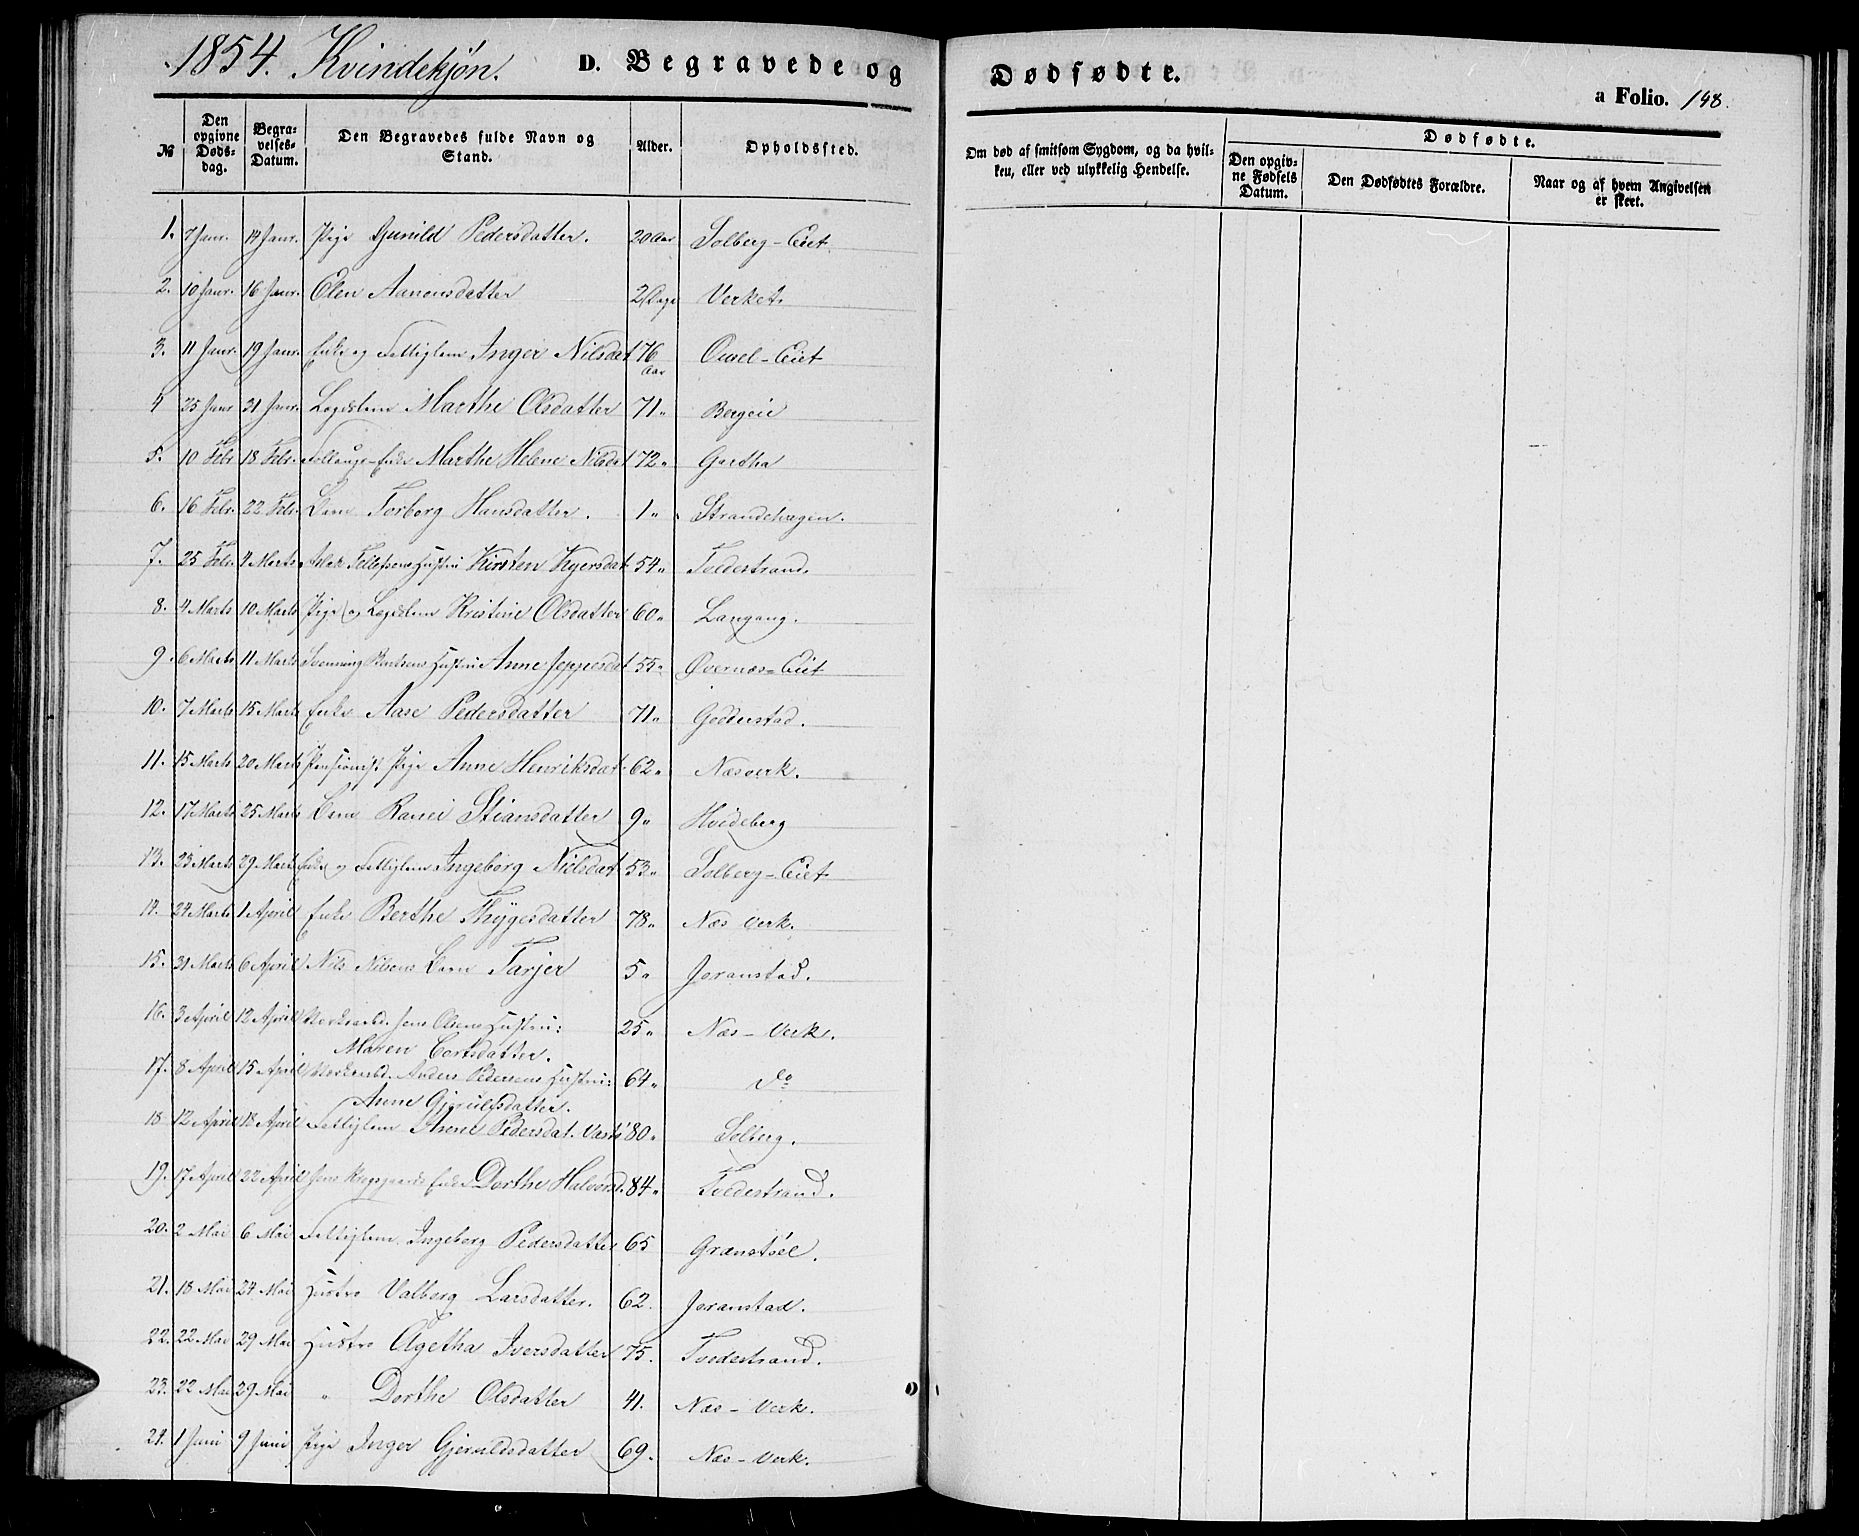 1854. Kvindekjøn. D. Begravede og Dødfødte.
a Folio. 148.
№ Den opgivne Døds-dag. Begra-velses-Datum. Den Begravedes fulde Navn og Stand. Alder. Opholdsfted. Om død af smitsom Sygdom, og da hvil-ken, eller ved ulykkelig Hendelse. Dødfødte. Den opgiv-ne Fødsels Datum. Den Dødfødtes Forældre. Naar og af hvem Angivelsen er skeet.
1. 7 Janr. 14 Janr. Pige Gunild Pedersdatter. 20 Aar Solberg-Eiet.
2. 10 Janr. 16 Janr. Elen Aanonsdatter 2 Dage Verket.
3. 11 Janr. 19 Janr. Enke og Fattiglem Inger Nilsdat 76 Aar -Eiet
4 25 Janr 31 Janr. Lægdslem Marthe Olsdatter 71" Bergeie
5. 10 Febr 18 Febr. Enke Marthe Helene Nilsdat 72" Gartha
6. 16 Febr. 22 Febr. Barn Torborg Hansdatter. 1" Strandehagen.
7. 25 Febr. 4 Marts Aslak Tellefsens Hustru Kirsten 54" Tvedestrand.
8. 4 Marts 10 Marts Pige og Lægdslem Kristine Olsdatter 60" Langang.
9. 6 Marts 11 Marts Svenning Hustru Anne Jeppesdat 55" Øvernæs-Eiet
10. 7 Marts 15 Marts Enke Aase Pedersdatter 71" Goderstad.
11. 15 Marts 20 Marts Pensionist Pige Anne Henriksdat 62" Næsverk.
12. 17 Marts 25 Marts Barn Ranei Stiansdatter 9" Hvideberg
13. 23 Marts 29 Marts Enke og Fattiglem Ingeborg Nielsdat 53" Solberg-Eiet
14. 24 Marts 1 April Enke Berthe Thygesdatter 78" Næs Verk.
15. 31 Marts 6 April Nils Nilsens Barn Tarjer 5" Joranstad.
16. 3 April 12 April Jens Olsens Hustru: 25" Næs-Verk.
Maren Cortsdatter.
17. 8 April 15 April Anders Pedersens Hustru: 64" do
Anne Gjerulfsdatter.
18 12 April 18 April Fattiglem Anne Pedersdat. 80" Solberg.
19. 17 April 22 April Jens Enke Dorthe Halvorsd. 84" Tvedestrand.
20. 2 Mai 6 Mai Fattiglem Ingeborg Pedersdatter 65 Grænstøel.
21. 18 Mai 24 Mai Hustru Valborg Larsdatter. 62. Joranstad.
22. 22 Mai 29 Mai Hustru Agetha Iversdatter 75. Tvedestrand.
23. 22 Mai 29 Mai " Dorthe Olsdatter 41. Næs-Verk.
24. 1 Juni 9 Juni Pige Inger Gjeruldsdatter 69. Næs-Verk.